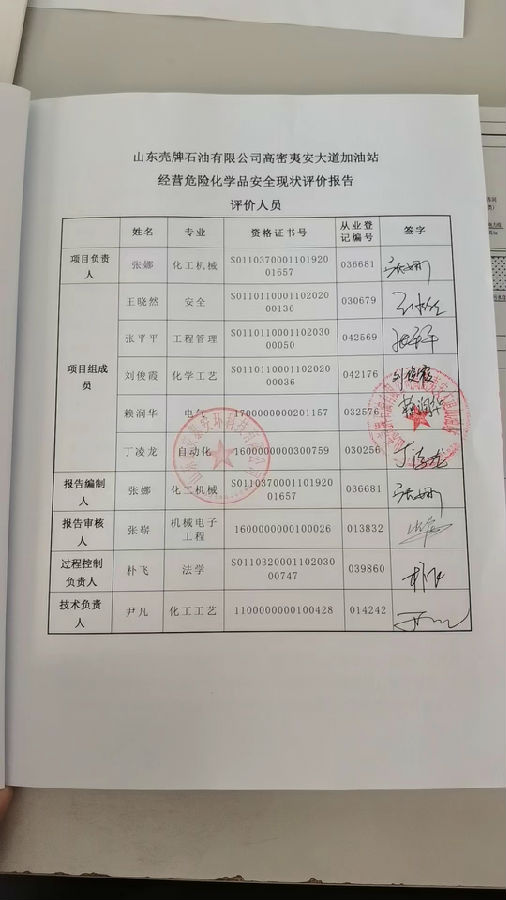 山东壳牌石油有限公司高密夷安大道加油站
经营危险化学品安全现状评价报告
评价人员
姓名 专业 资格证书号 从业登记编号 签字
项目负责人 张娜 化工机械 S011037000110192001657 036681 张娜
项目组成员 王晓然 安全 S011011000110202000136 030679
张平平 工程管理 S011011000110203000050 042569
刘俊霞 化学工艺 S011011000110202000036 042176 刘俊霞
赖润华 电气 1700000000201157 032576 赖润华
丁凌龙 自动化 1600000000300759 030256 丁凌龙
报告编制人 张娜 化工机械 S011037000110192001657 036681 张娜
报告审核人 张崭 机械电子工程 1600000000100026 013832
过程控制负责人 朴飞 法学 S011032000110203000747 039860 朴飞
技术负责人 尹凡 化工工艺 1100000000100428 014242